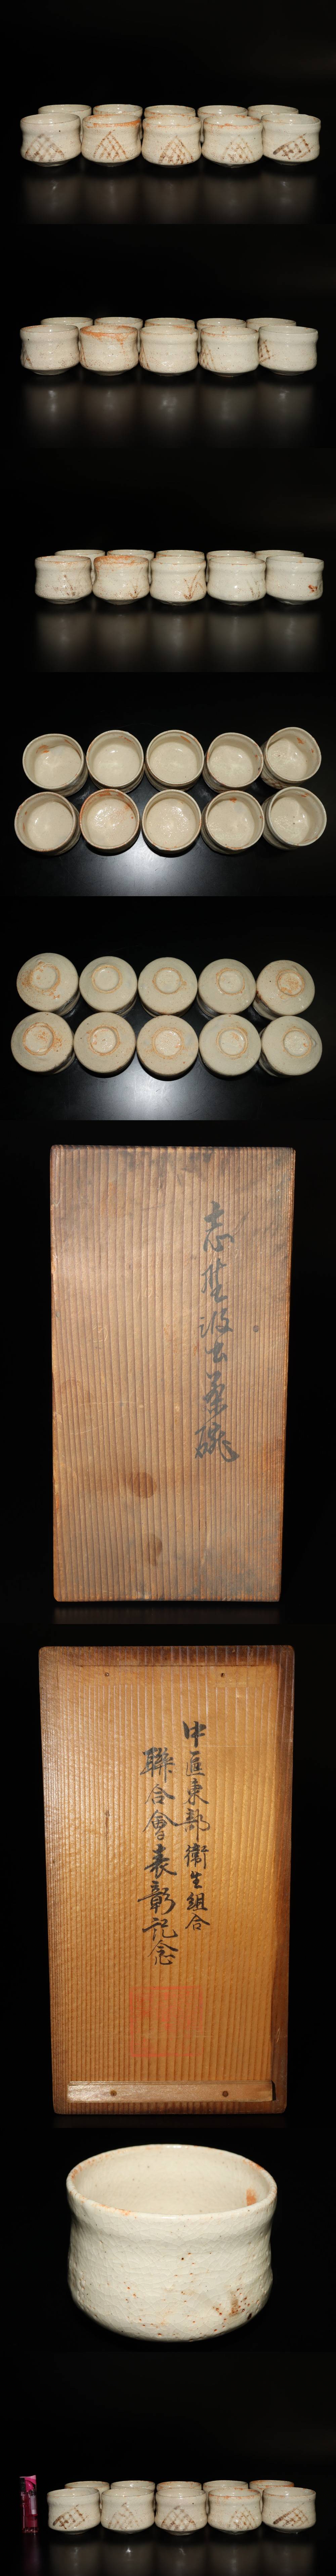 志埜汲出茶碗
中區東部衛生組合
聯合會表彰記念